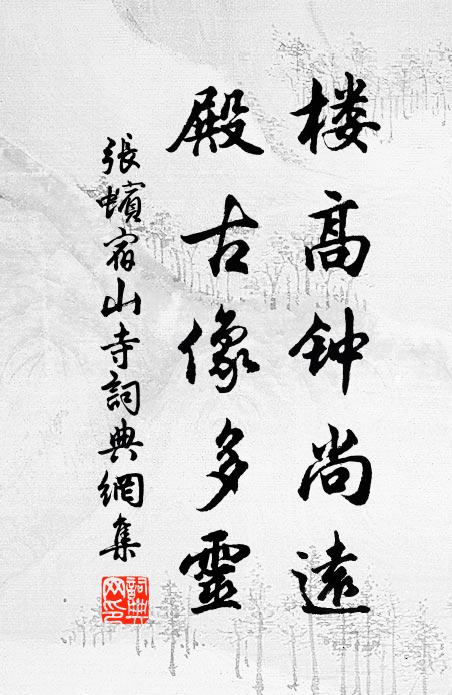 楼高钟尚遠
殿古像多靈
張蠙宿山寺詞典網集
詞典
网印